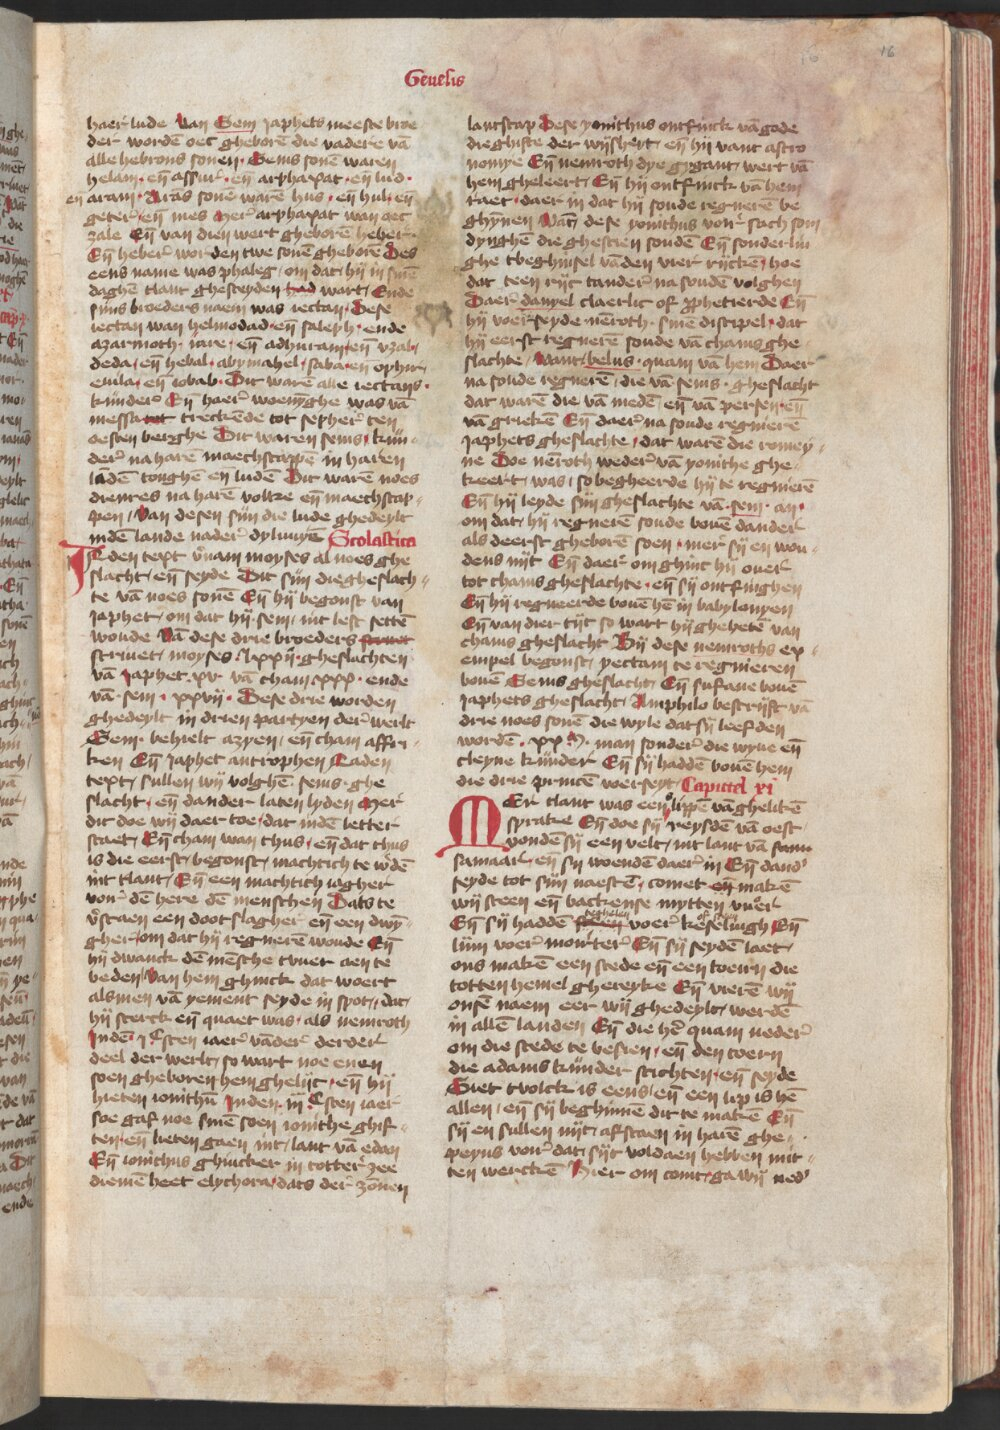 16
Genesis
haer lude Van Sem Japhets meeste broe
der wordē oec gheborē die vadere vā
alle hebrons sonen · Sems sonē waren
helam · eñ assur · eñ arphaxat · eñ lud ·
eñ aram · Arās sonē warē hus · eñ hul · eñ
geter · eñ mes Mer arphaxat wan oec
zale Eñ van dien wert gheborē heber
Eñ heber worden twe sonē gheborē Des
eens name was phaleg / om dat hij in sinē
daghē tlant ghesceyden had wart / Ende
sijns broeders naem was iectan / Dese
iectan wan helmodad eñ saleph · ende
azarmoth · iare · eñ adhuram eñ vzal ·
deda · eñ hebal · abymahel · saba · eñ ophir ·
euila · eñ iobab · Dit warē alle iectans ·
kinder Eñ haer woenīghe was vā
messa tot treckēde tot sepher ten
oesten berghe Dit waren sems · kīn ·
der na harē maechscappē in haren
lādē tonghē en ludē Dit warē noes
dienres na harē volke eñ maechscap ·
pen / Van desen sijn die lude ghedeylt
indē lande nader dyluuyē Scolastica
IC den text v̄nam moyses al noes ghe
slacht / eñ seyde Dit sijn die gheslach ·
te vā noes sonē Eñ hij begonst van
Japhet / om dat hij · sem · int lest settē
woude Vā dese drie broeders
scriuet / moyses · lxxij · gheslachten
vā Japhet · xv · vā cham xxx · ende
vā · sem · xxvij · Dese drie worden
ghedeylt in drien partyen der werlt
Sem · behielt azyen / eñ cham affri ·
ken Eñ Japhet antrophen Laden
text / sullen wij volghē sems · ghe
slacht · eñ dander laten lyden Mer
dit doe wij daer toe / dat indē letter
staet / Eñ cham wan chus / eñ dat chus
is die eerst / begonst / machtich te w̄dē
int tlant / Eñ een machtich iagher
voer dē here dē menschen Dats te
v̄staen een dootslagher eñ een dwȳ ·
gher om dat hij regnerē woude Eñ
hij dwanck dē mēsche tvuer aen te
beden / Van hem ghinck dat woert
alsmen vā yement seyde in spot / dat /
hij sterck eñ quaet was · als nemroth
Indē · j · Csten iaer vāder derder
deel der werlt / so wart noe enen
soen gheboren hem ghelijc · eñ hij
hieten ionithū Inden · iij · Csten iaer
soe gaf noe sinē soen ionithe ghif ·
ten eñ lieten gaen int / lant vā edan
Eñ ionithus ghincker in totter zee
diemē heet elychora / dats der zōnen
lantscap Dese yonithus ontfinck vā gode
die ghifte der wijshꝫt / eñ hij vant astro
nomye Eñ nemroth dye gygant / wert vā
hem gheleert / Eñ hij ontfinck vā hem
raet / daer in dat hij soude regnerē be
ghȳnen Wāt dese yonithus voer sach som
dynghē die ghescien soudē Eñ sonderlin
ghe tbeghinsel vāden vier rijckē / hoe
dat teen rijc tander na soudē volghen
Daer danyel claerlic of prophetierde Eñ
hij voer seyde · nēroth · sinē discipel · dat
hij eerst regnerē soude vā chams ghe ·
slachte / Want / belus · quam vā hem Daer
na soude regnerē / die vā sems · gheslacht
dat warē die vā medē / eñ vā persen · eñ
vā griekē Eñ daer na soude regnierē
Japhets gheslachte · dat warē die romey ·
ne Doe nēroth weder vā yonithe ghe ·
keert / was / so begheerde hij te regnierē
Eñ hij leyde sijn gheslachte vā · sem · an ·
om dat / hij regnerē soude bouē dander
als deerst gheborē soen · mer sij en wou ·
dens nijt Eñ daer om ghinc hij ouer
tot chams gheslachte · eñ sij ontfinghen
Eñ hij regneerde bouē hē in babylonyen
Eñ van dier tijt so wart hij ghehetē van
chams gheslacht Bij dese nemroths ex ·
empel begonst / yectam te regnieren
bouē Sems gheslacht / Eñ sufane bouē
Japhets gheslacht / Amphilo bescrijft vā
drie noes sonē die wyle dat sij leefden
wordē · xx · M · man sonder die wyue eñ
cleyne kinder Eñ sij haddē bouē hem
die drie prīncē voerseyt / Capittel xi
MEr tlant was eenr lippē vā ghelikē
sprake Eñ doe sij reysdē vā oest
vondē sij een velt / int lant vā senn
samaar / eñ sij woendē daer in Eñ dand
seyde tot sijn naestē · comet eñ makē
wij steen eñ backense mytten vuer
Eñ sij haddē teghelen voer keselingh Eñ
lijm voer morter Eñ sij seydē laet /
ons makē een stede eñ een toern die
totten hemel ghereyke Eñ vierē wij
onsē naem eer wij ghedeylt / werdē
in allē landen Eñ die hē quam neder
om die stede te besien / eñ den toern
die adams kinder stichten · eñ seyde
Siet tvolck is eens / eñ een lip is hē
allen / eñ sij beghinnē dit te makē Eñ
sij en sullen nijt / afstaen in harē ghe ·
peyns voer dat / sijt voldaen hebben mit ·
ten werckē Hier om comt / ga wij ned